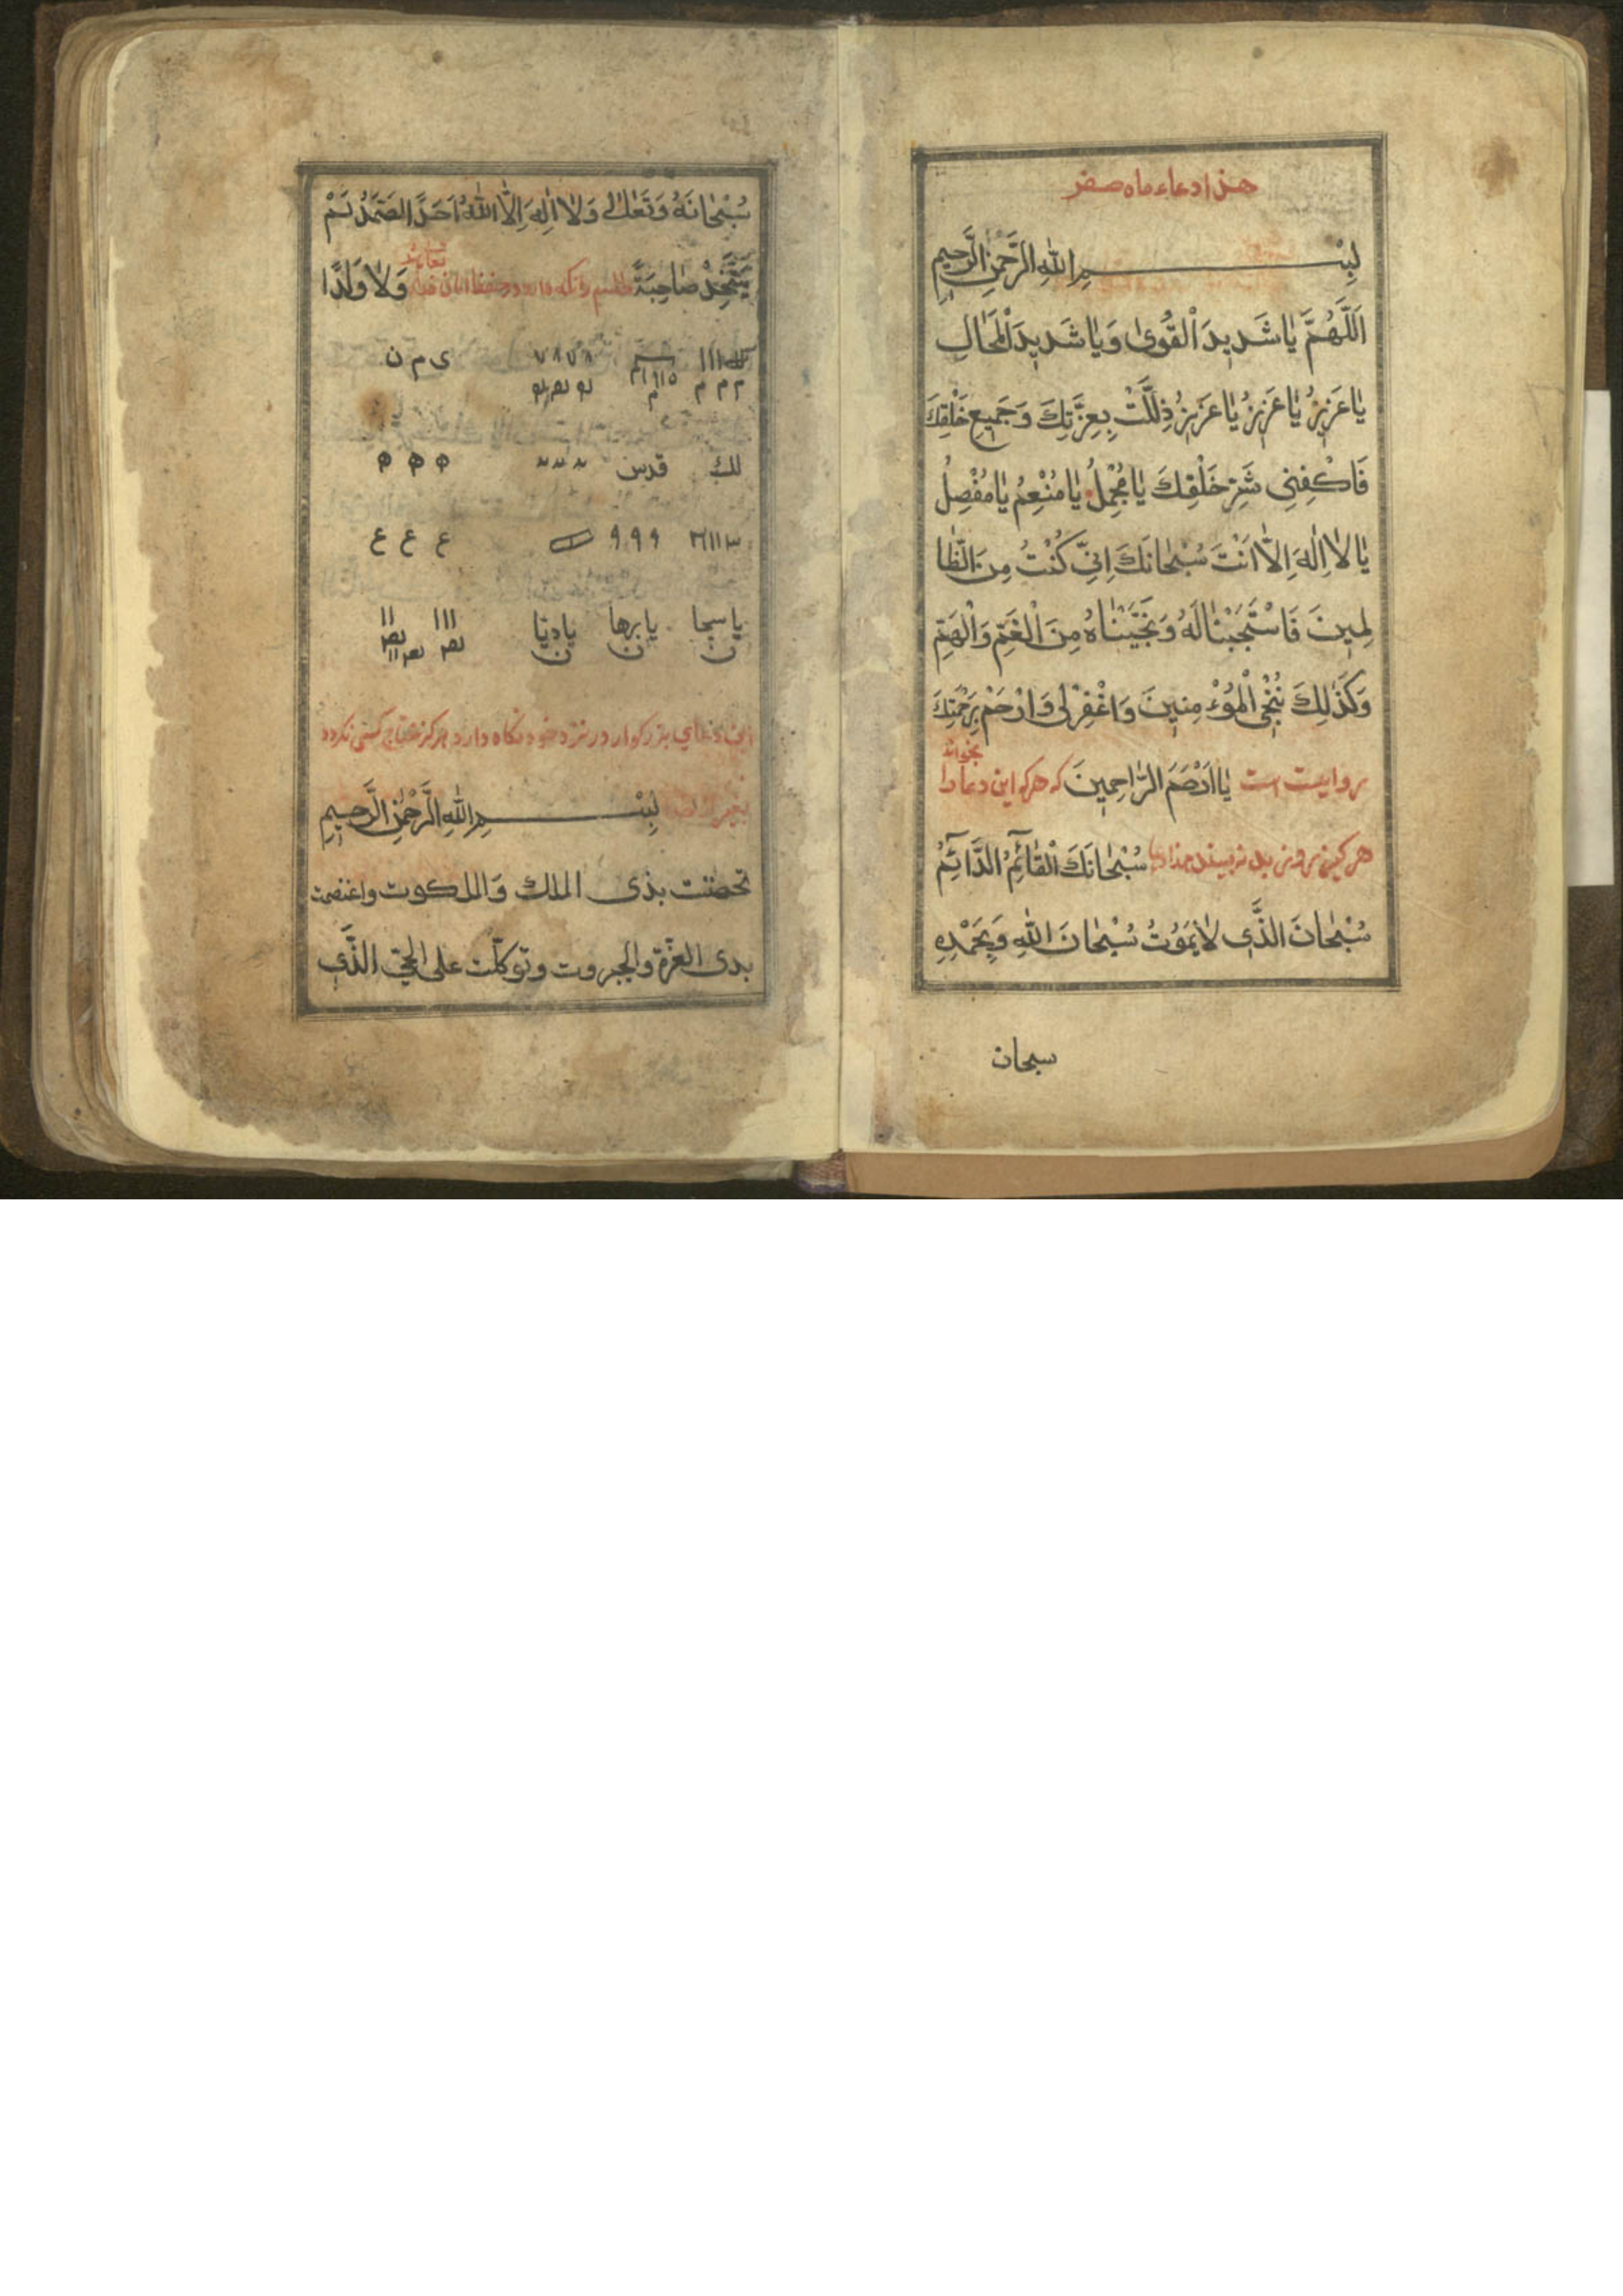 هذا دعاء ماه صفر
بِسْمِ اللهِ الرَّحْمٰنِ الرَّحِيمِ
اَللّٰهُمَّ يٰا شَدِيدَ الْقُوىٰ وَيٰا شَدِيدَ الْمَحٰالِ
يٰا عَزِيزُ يٰا عَزِيزُ يٰا عَزِيزُ ذِلَلَّتْ بِعِزَّتِكَ وَجَمِيعِ خَلْقِكَ
فَاكْفِنِى شَرِّ خَلْقِكَ يٰا مُجْمِلُ يٰا مُنْعِمُ يٰا مُفْصِلُ
يٰا لٰا اِلٰهَ اِلّٰا اَنْتَ سُبْحٰانَكَ اِنِّى كُنْتُ مِنَ الظّٰا
لِمِينَ فَاسْتَجَبْنٰا لَهُ وَنَجَّيْنٰاهُ مِنَ الْغَمِّ وَالْهَمِّ
وَكَذٰلِكَ نُنْجِى الْمُؤْمِنِينَ وَاغْفِرْلِى وَارْحَمْ بِرَحْمَتِكَ
يٰا اَرْحَمَ الرّٰاحِمِينَ روايست است كه هركه اين دعا را بخواند
هركز سُبْحٰانَكَ الْقٰائِمُ الدّٰائِمُ
سُبْحٰانَ الَّذِى لٰا يَمُوتُ سُبْحٰانَ اللهِ وَبِحَمْدِهِ
سبحان
سُبْحٰانَهُ وَتَعٰالٰى وَلٰا اِلٰهَ اِلَّا اللهُ اَحَدً الصَّمَدُ لَمْ
يَتَّخِذْ صٰاحِبَةً وَلٰا وَلَدًا
ى م ن
م م م
لك قدس
٩ ٩ ٩ ع ع ع
يا سبحا يا برها يا ديّا
ن ن ن
اين دعاى بزركوار در نزد خود نكاه دارد هركز محتاج كسى نكردد
بغير بِسْمِ اللهِ الرَّحْمٰنِ الرَّحِيمِ
تحصّنت بذى الملك وَالملكوت واعتصمت
بذى العزّة والجبروت وتوكّلت على الحىّ الَّذِى